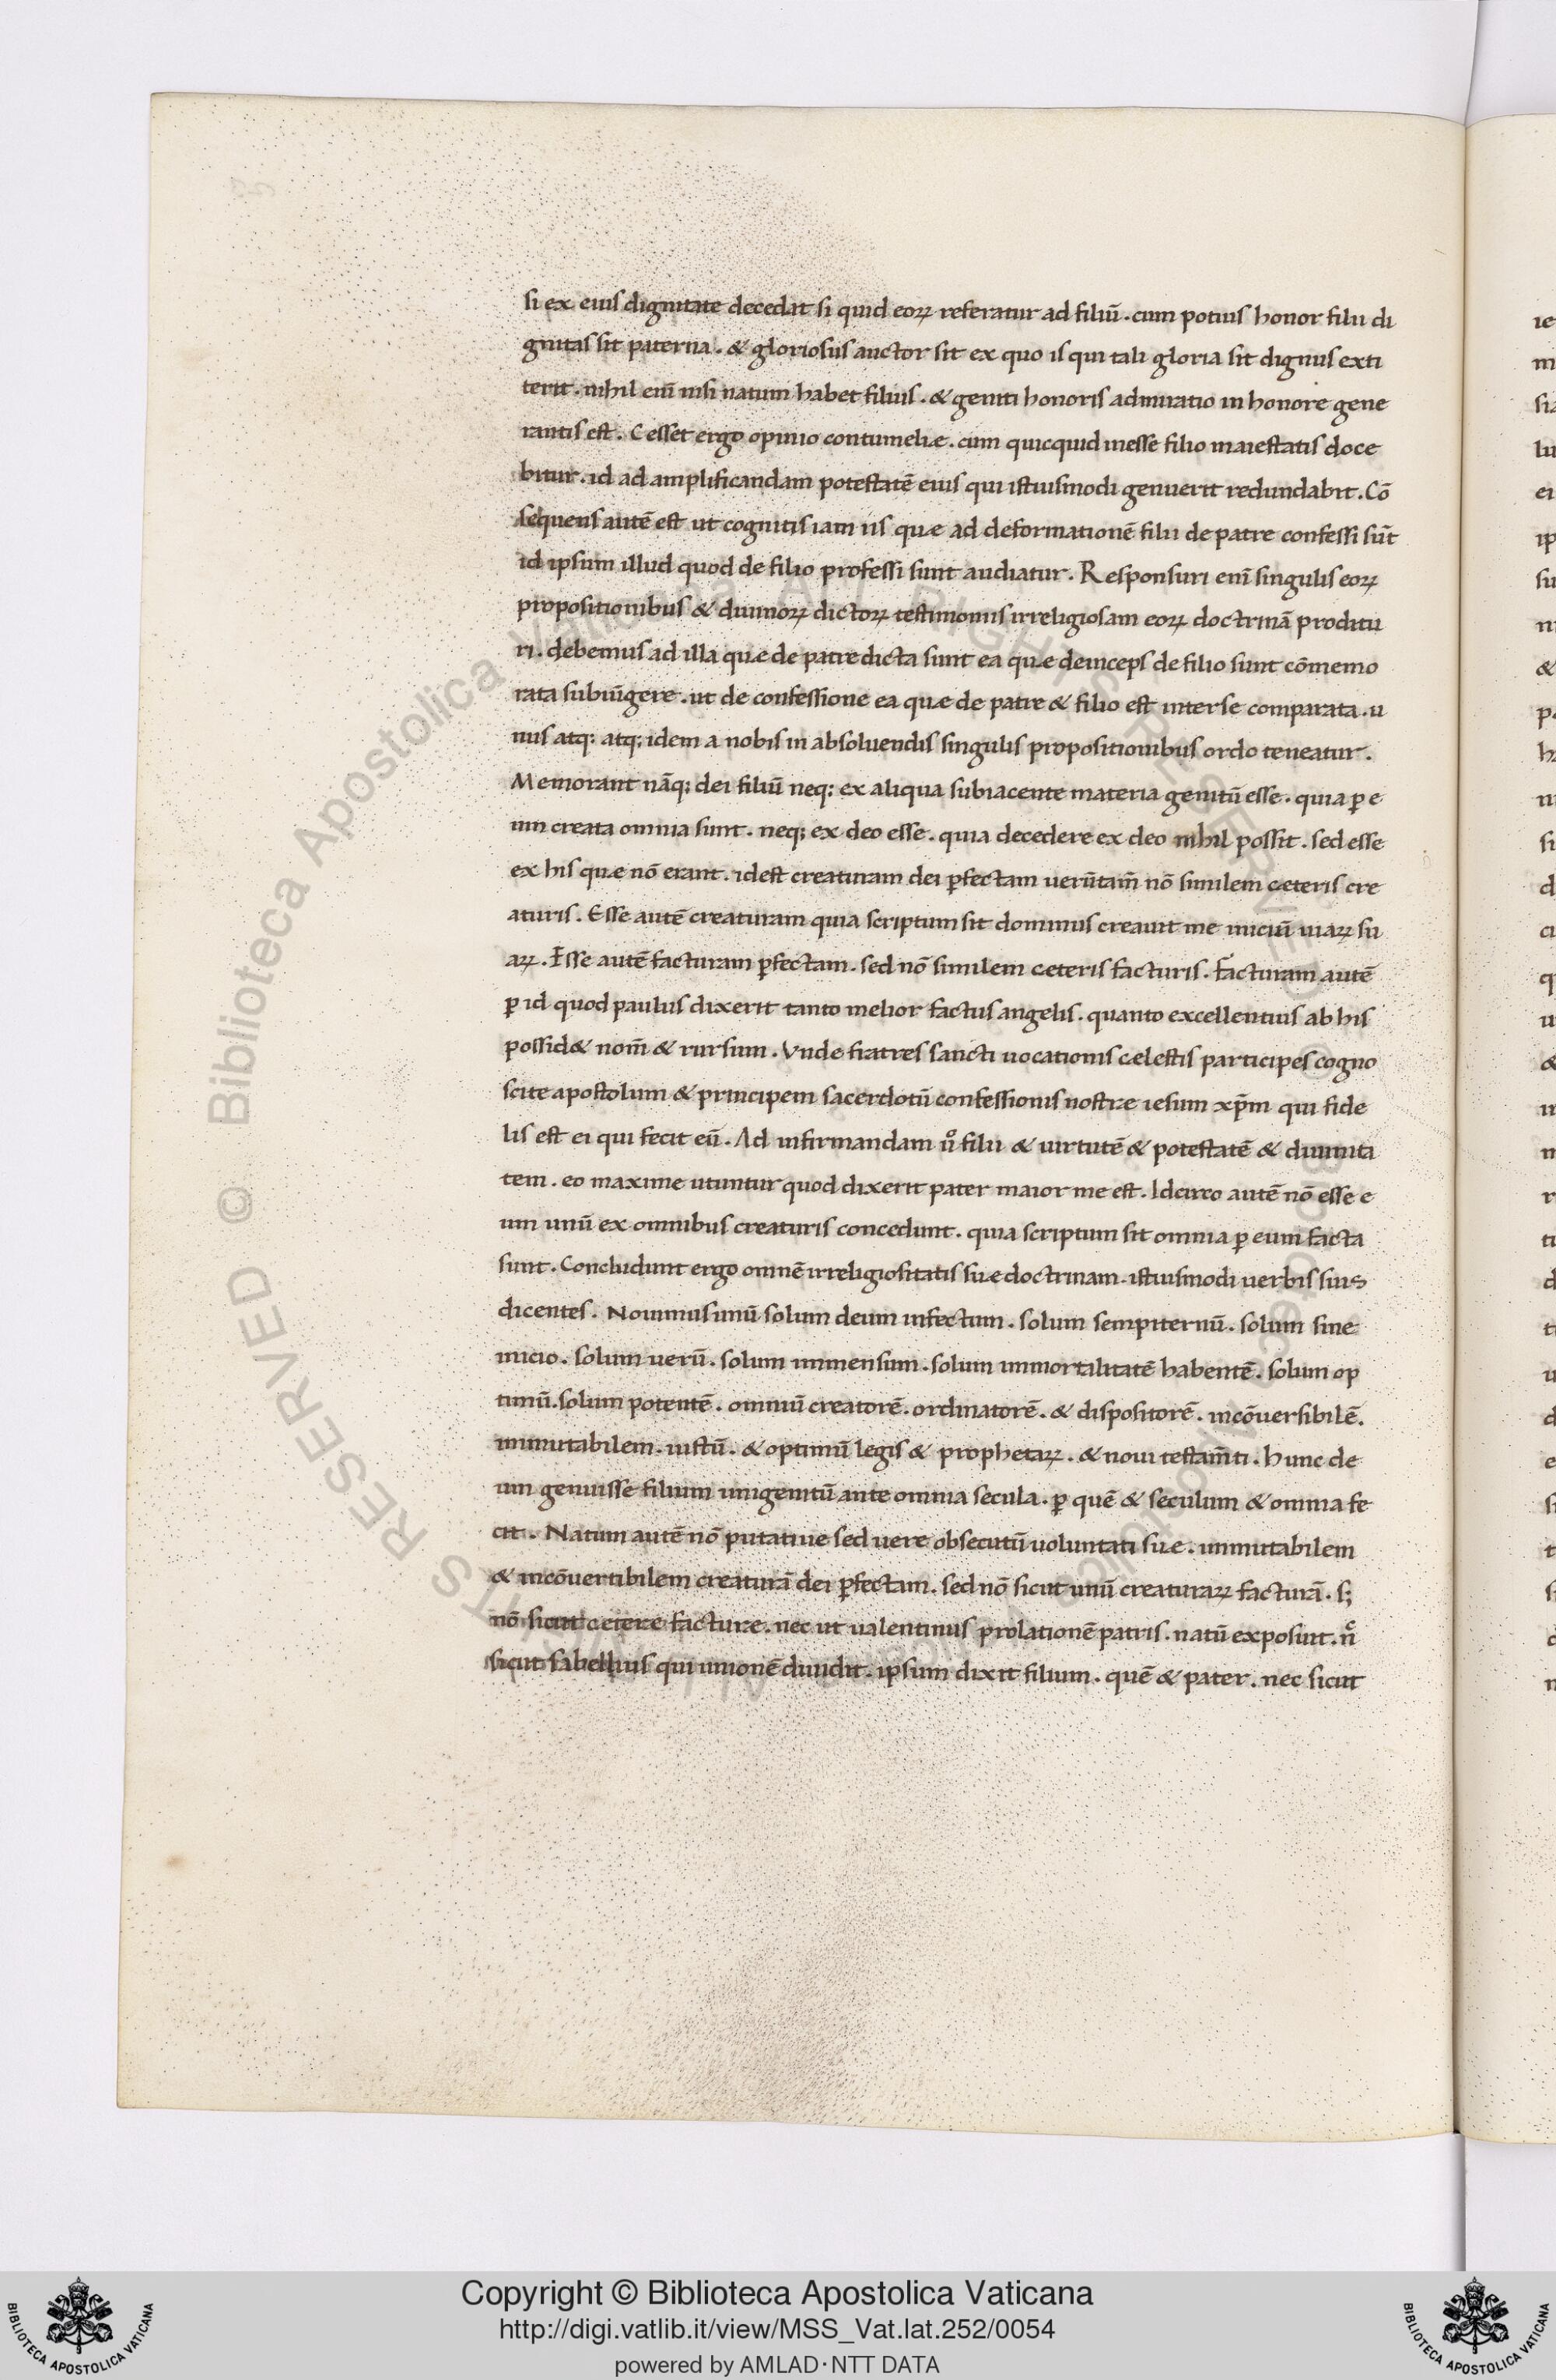 si ex eius dignitate decedat si quid eoꝝ referatur ad filiū. cum potius honor filii di
gnitas sit paterna. & gloriosus auctor sit ex quo is qui tali gloria sit dignus exti
terit. nihil eni̅ nisi natum habet filius. & geniti honoris admiratio in honore gene
rantis est. Cesset ergo opinio contumeliæ. cum quicquid inesse filio maiestatis doce
bitur. id ad amplificandam potestatē eius qui istiusmodi genuerit redundabit. Cō
sequens autē est ut cognitis iam iis quæ ad deformationē filii de patre confessi sūt
id ipsum illud quod de filio professi sunt audiatur. Responsuri eni̅ singulis eoꝝ
propositionibus & diuinoꝝ dictoꝝ testimoniis irreligiosam eoꝝ doctrinā proditu
ri. debemus ad illa quæ de patre dicta sunt ea quæ deinceps de filio sunt cōmemo
rata subiūgere. ut de confessione ea quæ de patre & filio est inter se comparata. u
nus atq; atq; idem a nobis in absoluendis singulis propositionibus ordo teneatur.
Memorant nāq; dei filiū neq; ex aliqua subiacente materia genitū esse. quia ꝑ e
um creata omnia sunt. neq; ex deo esse. quia decedere ex deo nihil possit. sed esse
ex his quæ nō erant. idest creaturam dei ꝑfectam uerūtam̅ nō similem ceteris cre
aturis. Esse autē creaturam quia scriptum sit dominus creauit me iniciū uiaꝝ su
aꝝ. Esse autē facturam ꝑfectam. sed nō similem ceteris facturis. Facturam autē
ꝑ id quod paulus dixerit tanto melior factus angelis. quanto excellentius ab his
possid& nom̅ & rursum. Vnde fratres sancti uocationis cælestis participes cogno
scite apostolum & principem sacerdotū confessionis nostræ iesum xp̅m qui fide
lis est ei qui fecit eū. Ad infirmandam uͦ filii & uirtutē & potestatē & diuinita
tem. eo maxime utuntur quod dixerit pater maior me est. Idcirco autē nō esse e
um unū ex omnibus creaturis concedunt. quia scriptum sit omnia ꝑ eum facta
sunt. Concludunt ergo omnē irreligiositatis suæ doctrinam. istiusmodi uerbis suis
dicentes. Nouimus unū solum deum infectum. solum sempiternū. solum sine
inicio. solum uerū. solum inmensum. solum immortalitatē habentē. solum op
timū. solum potentē. omniū creatorē. ordinatorē. & dispositorē. incōuersibilē.
inmutabilem. iustū. & optimū legis & prophetaꝝ. & noui testam̅ti. Hunc de
um genuisse filium unigenitū ante omnia secula. ꝑ quē & seculum & omnia fe
cit. Natum autē nō putatiue sed uere obsecutū uoluntati suæ. inmutabilem
& incōuertibilem creaturā dei ꝑfectam. sed nō sicut unū creaturaꝝ facturā. s;
nō sicut ceteræ facturæ. nec ut ualentinus prolationē patris. natū exposuit. nͦ
sicut sabellius qui unionē diuidit. ipsum dixit filium. quē & pater. nec sicut
Copyright © Biblioteca Apostolica Vaticana
http://digi.vatlib.it/view/MSS_Vat.lat.252/0054
powered by AMLAD·NTT DATA